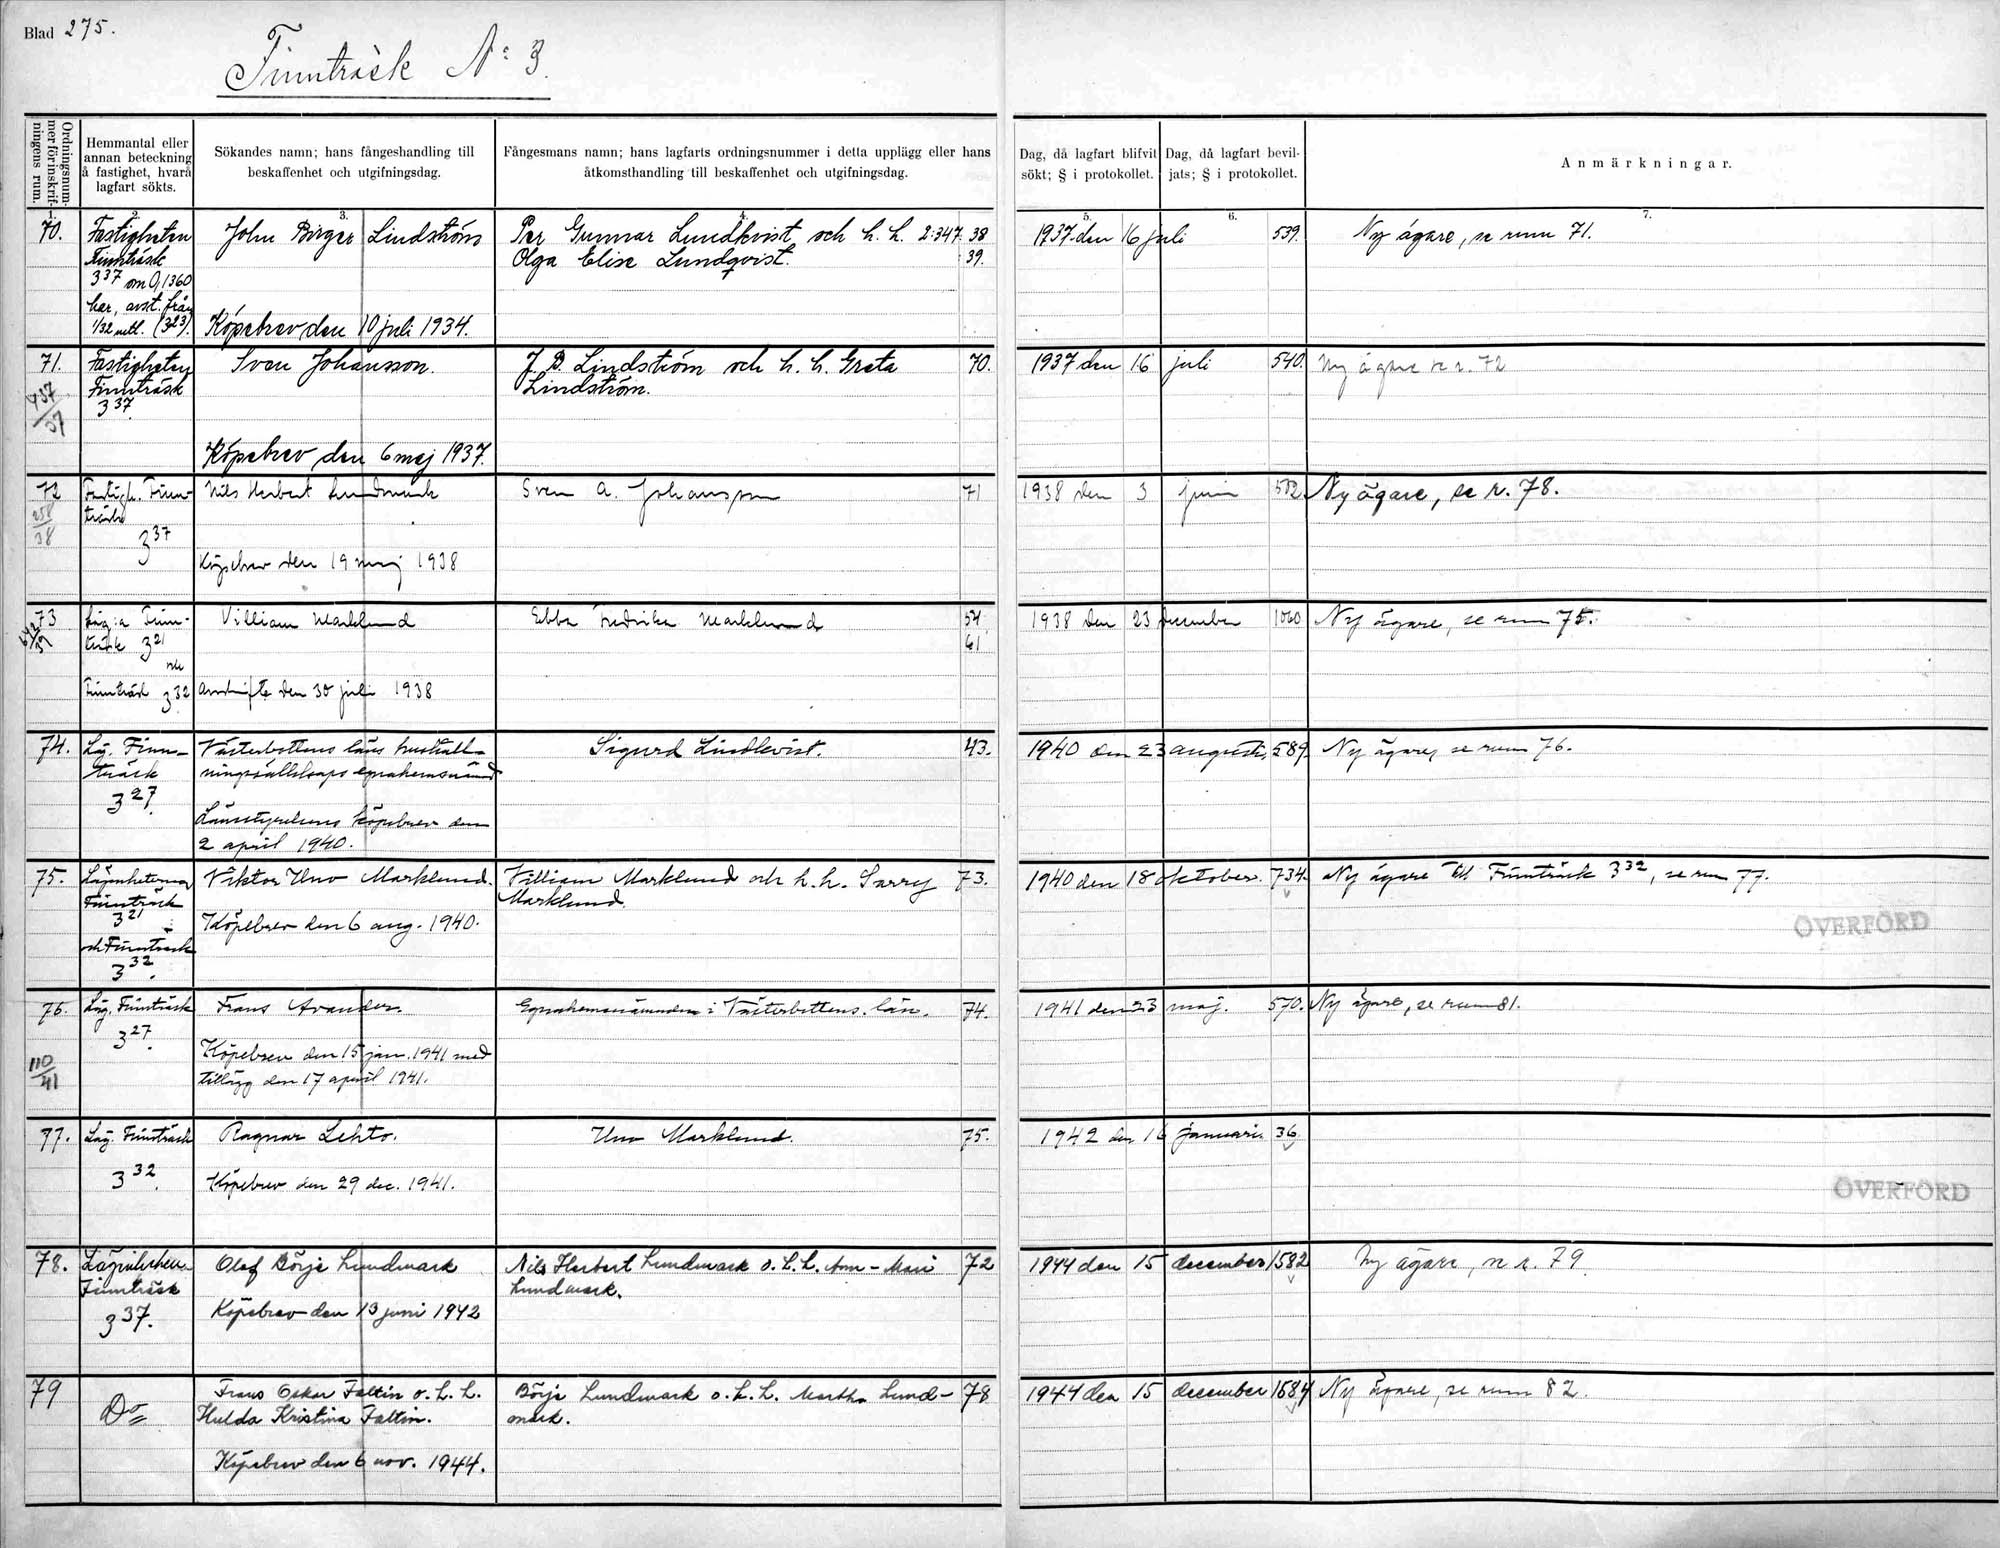 Blad 275.
Finnträsk No 3.
Ordningsnum-
mer för inskrif-
ningens rum.
Hemmantal eller
annan beteckning
å fastighet, hvarå
lagfart sökts.
Sökandes namn; hans fångeshandling till
beskaffenhet och utgifningsdag.
Fångesmans namn; hans lagfarts ordningsnummer i detta upplägg eller hans
åtkomsthandling till beskaffenhet och utgifningsdag.
Dag, då lagfart blifvit
sökt; § i protokollet.
Dag, då lagfart bevil-
jats; § i protokollet.
Anmärkningar.
1. 2. 3. 4. 5. 6. 7.
70. Fastigheten John Birger Lindström Per Gunnar Lundkvist och h. h. 2:347 38 1937 den 16 juli 539. Ny ägare, se rum 71.
Finnträsk Olga Elise Lundqvist. 39.
3 37 om 0,1360
har, avst. från
1/32 mtl. (3 23). Köpebrev den 10 juli 1934.
71. Fastigheten Sven Johansson. J. B. Lindström och h. h. Greta 70. 1937 den 16 juli 540. Ny ägare se r. 72
Finnträsk Lindström.
437/37 3 37.
Köpebrev den 6 maj 1937.
72 Fastigh. Finn- Nils Herbert Lundmark Sven A. Johansson 71 1938 den 3 juni 502. Ny ägare, se r. 78.
258/38 träsk
3 37
Köpebrev den 19 maj 1938
73 Läg:a Finn- Villiam Marklund Ebba Fredrika Marklund 54 1938 den 23 december 1060 Ny ägare, se rum 75.
träsk 3 21 61
och
Finnträsk 3 32 Arvskifte den 30 juli 1938
74. Läg. Finn- Västerbottens läns hushåll- Sigurd Lindkvist. 43. 1940 den 23 augusti, 589. Ny ägare, se rum 76.
träsk ningssällskaps egnahemsnämnd
3 27.
Länsstyrelsens köpebrev den
2 april 1940.
75. Lägenheterna Viktor Uno Marklund. Villiam Marklund och h. h. Sarry 73. 1940 den 18 oktober. 734. Ny ägare till Finnträsk 3 32, se rum 77.
Finnträsk Marklund.
3 21 Köpebrev den 6 aug. 1940. ÖVERFÖRD
och Finnträsk
3 32.
76. Läg. Finnträsk Frans Avander. Egnahemsnämnden i Västerbottens län. 74. 1941 den 23 maj. 570. Ny ägare, se rum 81.
3 27.
Köpebrev den 15 jan. 1941 med
110/41 tillägg den 17 april 1941.
77. Läg. Finnträsk Ragnar Lehto. Uno Marklund. 75. 1942 den 16 januari. 36
3 32. Köpebrev den 29 dec. 1941. ÖVERFÖRD
78. Lägenheten Olof Börje Lundmark Nils Herbert Lundmark o. h. h. Ann-Mari 72 1944 den 15 december 1582 Ny ägare, se r. 79.
Finnträsk Lundmark.
3 37. Köpebrev den 13 juni 1942
79 Do Frans Oskar Faltin o. h. h. Börje Lundmark o. h. h. Martha Lund- 78 1944 den 15 december 1584 Ny ägare, se rum 82.
Hulda Kristina Faltin. mark.
Köpebrev den 6 nov. 1944.